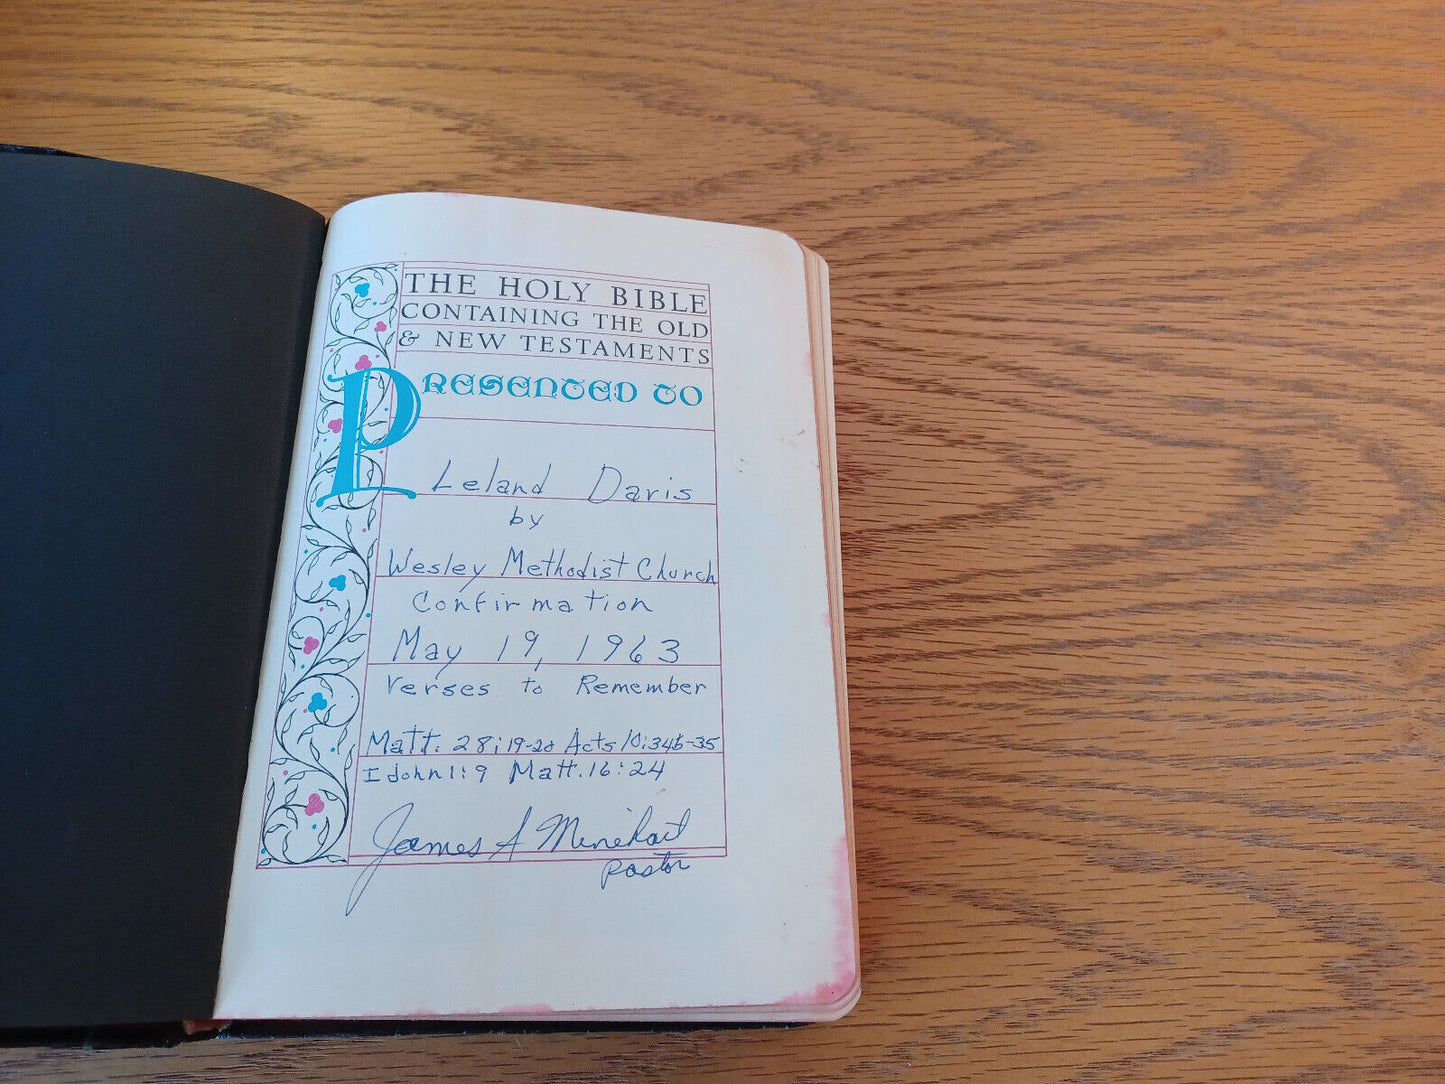 THE HOLY BIBLE
CONTAINING THE OLD
& NEW TESTAMENTS
PRESENTED TO
Leland Davis
by
Wesley Methodist Church
Confirmation
May 19, 1963
Verses to Remember
Matt. 28:19-20 Acts 10:34b-35
I John 1:9 Matt. 16:24
James A Minehart
Pastor